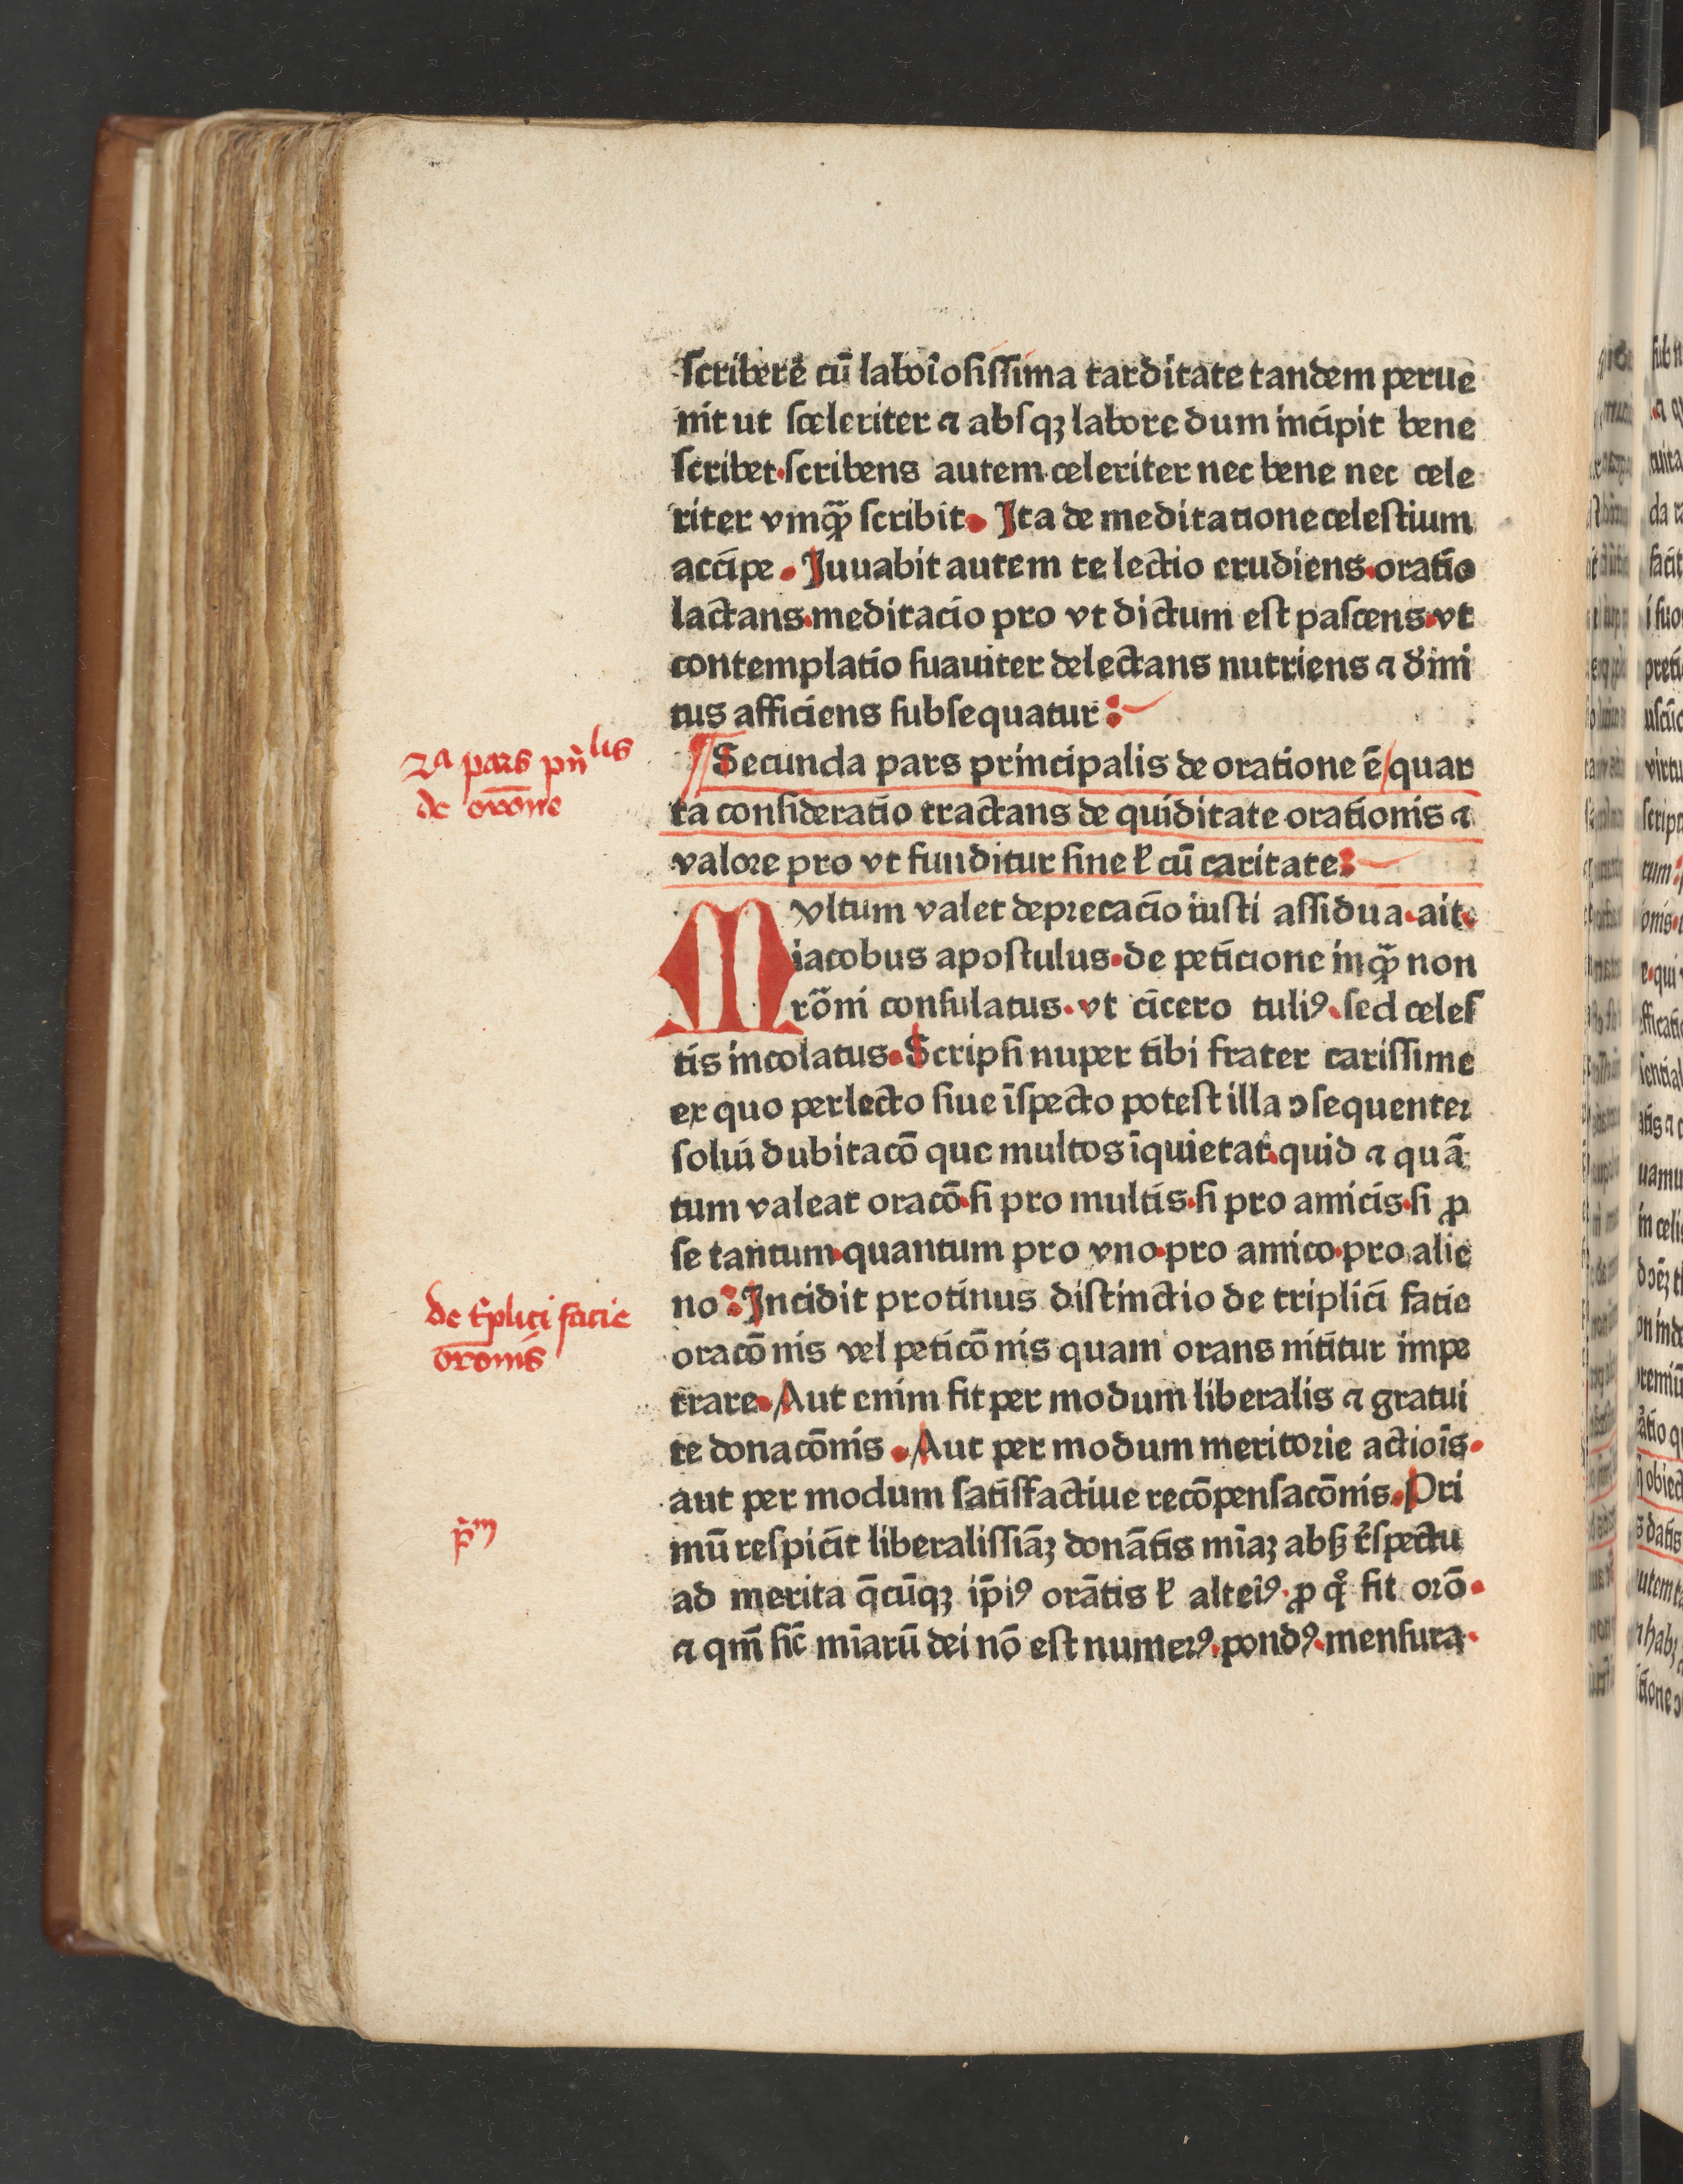 scribere cū laborosissima tarditate tandem perue
nit ut sceleriter ⁊ absqꝫ labore dum incipit bene
scribet·scribens autem celeriter nec bene nec cele
riter vmqꝫ̄ scribit· Ita de meditatione celestium
accipe· Iuuabit autem te lectio erudiens·oratio
lactans·meditacio pro vt dictum est pascens·vt
contemplatio suauiter delectans nutriens ⁊ diui
tus afficiens subsequatur:
2ᵃ pars pn̄lis
de orōne
¶ Secunda pars principalis de oratione ē/quar
ta consideratio tractans de quiditate orationis ⁊
valore pro vt funditur sine ł cū caritate:
Mvltum valet deprecacio iusti assidua·ait·
iacobus apostulus·de peticione inqꝫ̄ non
rōni consulatus·vt cicero tuliꝰ·sed celes
tis incolatus·Scripsi nuper tibi frater carissime
ex quo perlecto siue īspecto potest illa ꝯsequenter
solui dubitacō que multos īquietat·quid ⁊ quā
tum valeat oracō·si pro multis·si pro amicis·si ꝓ
se tantum·quantum pro vno·pro amico·pro alie
de tp̄lici facie
orōnis
no:Incidit protinus distinctio de triplici facie
oracōnis vel peticōnis quam orans nititur impe
trare·Aut enim fit per modum liberalis ⁊ gratui
te donacōnis·Aut per modum meritorie actiois̄·
aut per modum satisfactiue recōpensacōnis·Pri
p̄ᵐ
mū respicit liberalissiāꝫ donātis miāꝫ absqꝫ r̄spectu
ad merita q̄cūqꝫ ip̄iꝰ orātis ł alteīꝰ·ꝓ qͦ fit orō·
⁊ qm̄ sic̄ miārū dei nō est numerꝰ·pondꝰ·mensura·